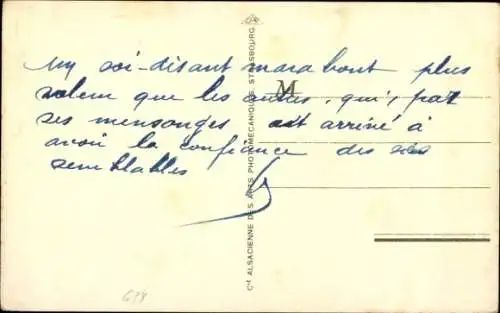 Un soi-disant marabout plus
voleur que les autres, qui, par
ses mensonges est arrivé à
avoir la confiance des ses
semblables
M
Cie ALSACIENNE DES ARTS PHOTOMÉCANIQUES, STRASBOURG
678